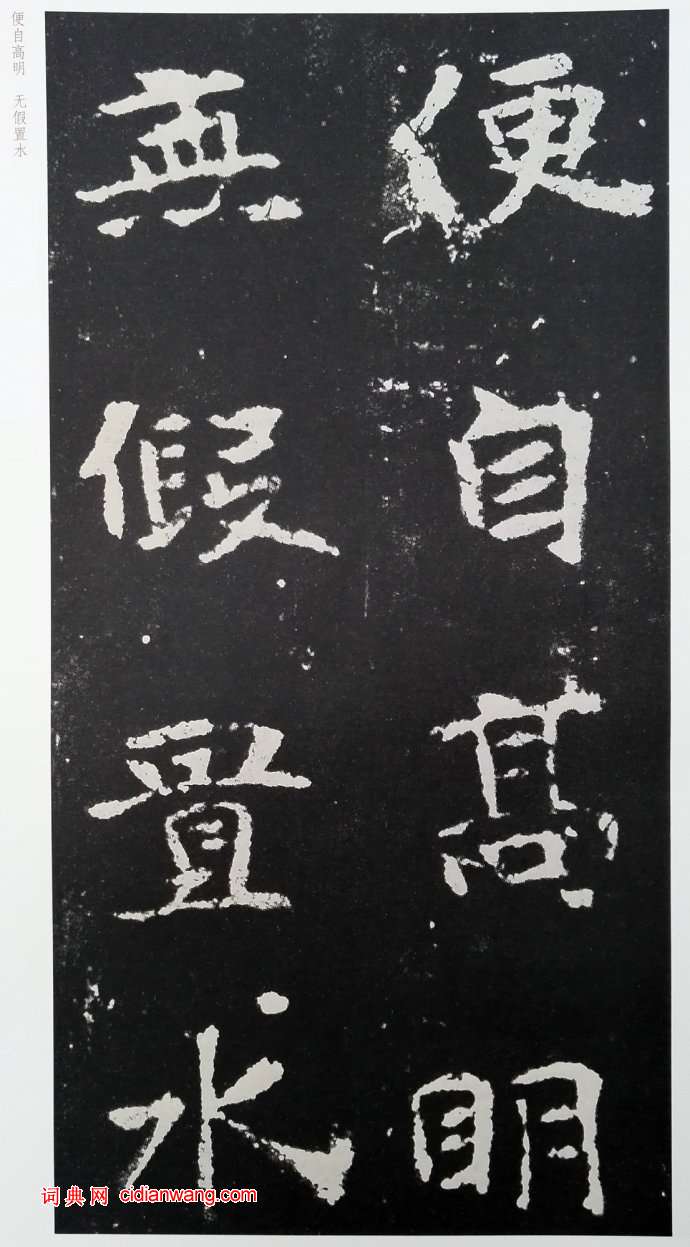 便自高明
無假置水
便自高明 无假置水
词典网 cidianwang.com